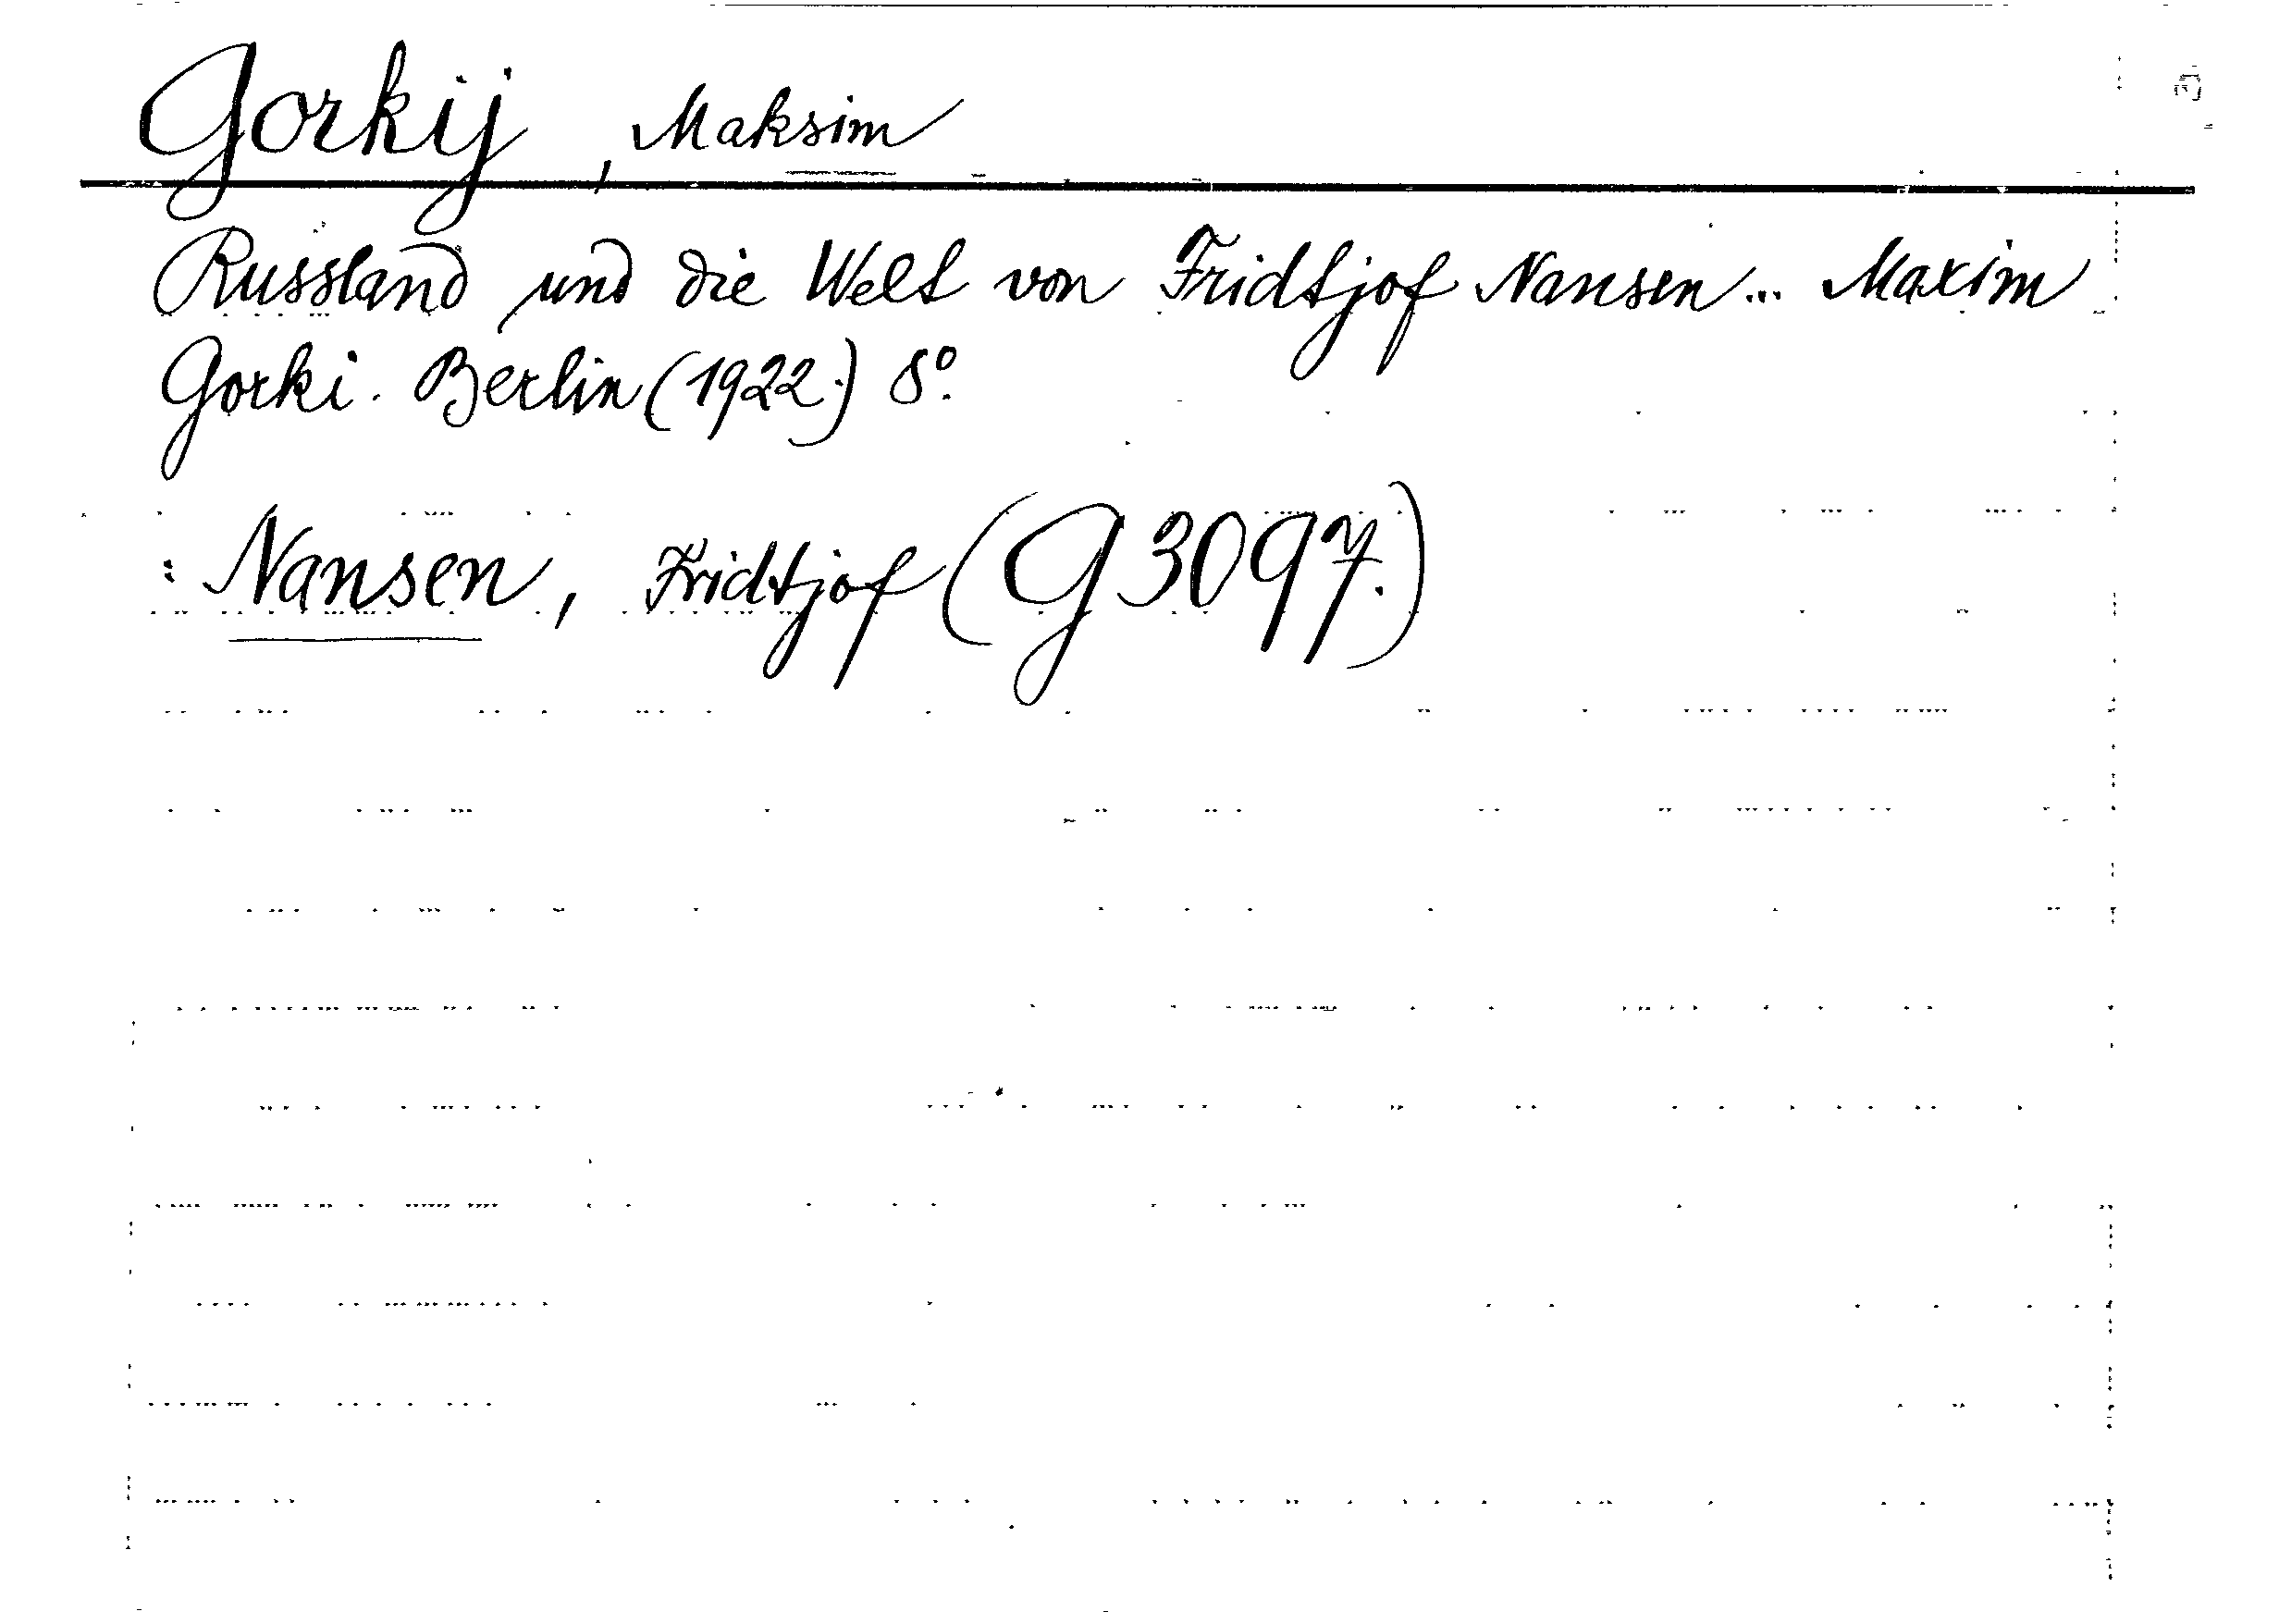 Gorkij, Maksim
Russland und die Welt von Fridtjof Nansen... Maxim
Gorki. Berlin (1922.) 8°.
: Nansen, Fridtjof (G 3097.)